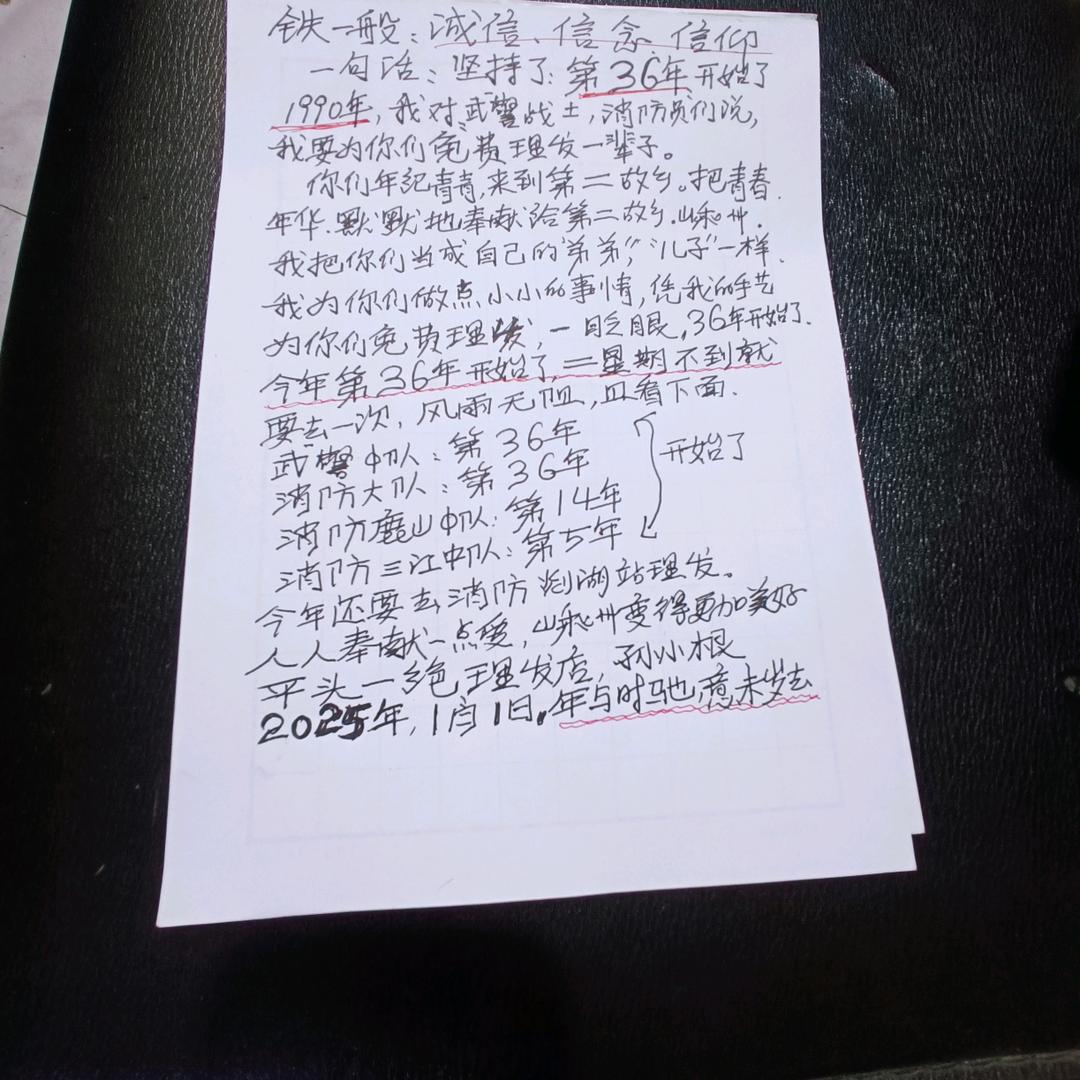 铁一般：诚信、信念、信仰
一句话：坚持了：第36年开始了
1990年，我对武警战士，消防员们说，
我要为你们免费理发一辈子。
你们年纪青青，来到第二故乡。把青春
年华.默默地奉献给第二故乡.嵊州.
我把你们当成自己的“弟弟”，“儿子”一样.
我为你们做点小小的事情，凭我的手艺
为你们免费理发，一眨眼，36年开始了.
今年第36年开始了，二星期不到就
要去一次，风雨无阻，且看下面.
武警中队：第36年
消防大队：第36年
开始了
消防鹿山中队：第14年
消防三江中队：第五年
今年还要去消防剡湖站理发。
人人奉献一点爱，嵊州变得更加美好
平头一绝理发店，孙小根
2025年，1月1日。年与时驰，意未岁去